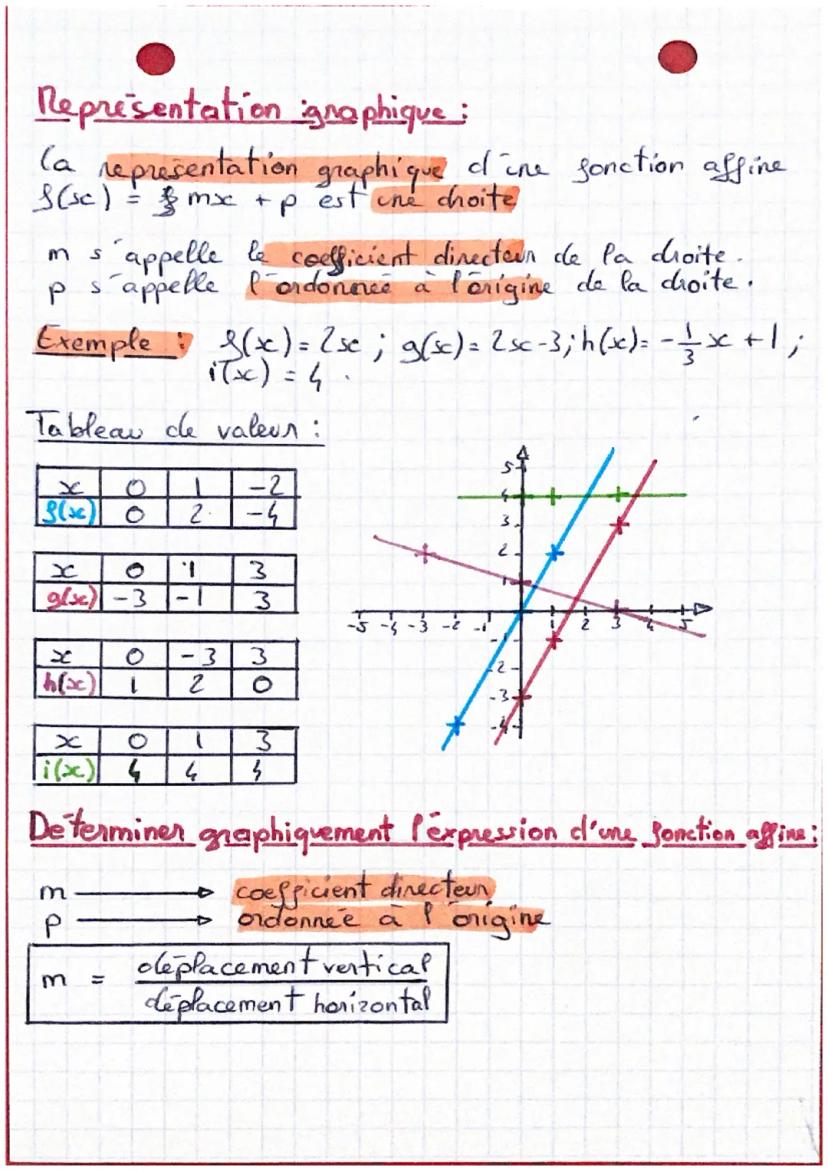 Représentation graphique :
La représentation graphique d'une fonction affine
f(x) = mx + p est une droite
m s'appelle le coefficient directeur de la droite.
p s'appelle l'ordonnée à l'origine de la droite.
Exemple : f(x) = 2x ; g(x) = 2x - 3 ; h(x) = -1/3 x + 1 ;
i(x) = 4 .
Tableau de valeur :
x 0 1 -2
f(x) 0 2 -4
x 0 1 3
g(x) -3 -1 3
x 0 -3 3
h(x) 1 2 0
x 0 1 3
i(x) 4 4 4
5
4
3
2
1
-5 -4 -3 -2 -1 1 2 3 4 5
-1
-2
-3
-4
Déterminer graphiquement l'expression d'une fonction affine :
m → coefficient directeur
p → ordonnée à l'origine
m = déplacement vertical
déplacement horizontal